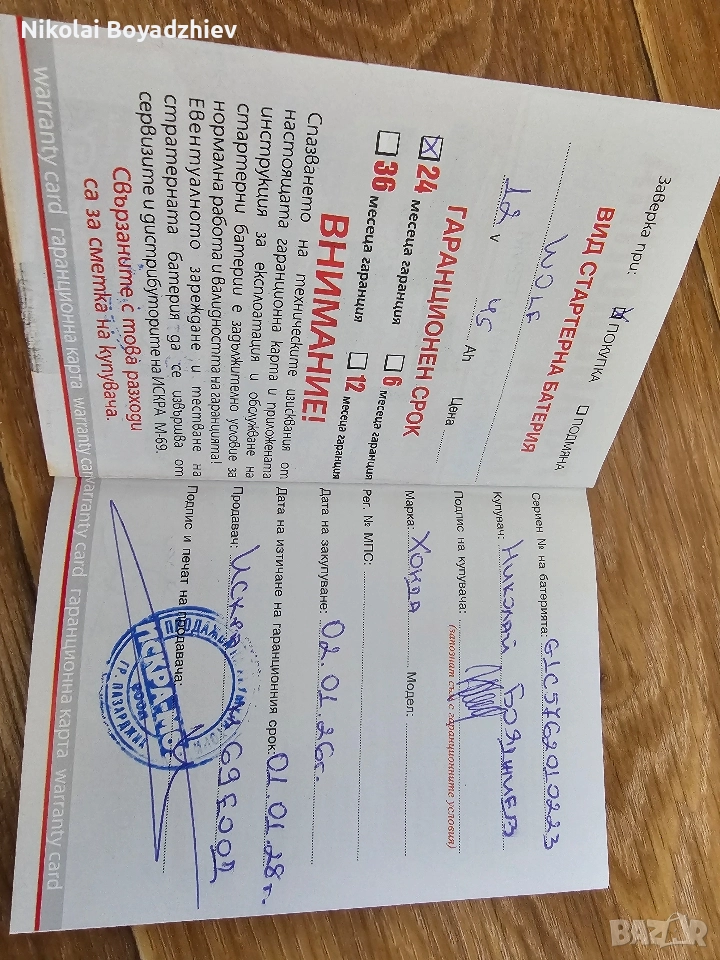 Nikolai Boyadzhiev
Заверка при: ☒ ПОКУПКА ☐ ПОДМЯНА
ВИД СТАРТЕРНА БАТЕРИЯ
WOLF
12 V 45 Ah Цена
ГАРАНЦИОНЕН СРОК
☒ 24 месеца гаранция ☐ 6 месеца гаранция
☐ 36 месеца гаранция ☐ 12 месеца гаранция
ВНИМАНИЕ!
Спазването на техническите изисквания от
настоящата гаранционна карта и приложената
инструкция за експлоатация и обслужване на
стартерни батерии е задължително условие за
нормална работа и валидността на гаранцията!
Евентуалното зареждане и тестване на
стратерната батерия да се извършва от
сервизите и дистрибуторите на ИСКРА М-69.
Свързаните с това разходи
са за сметка на купувача.
warranty card гаранционна карта warranty card
Сериен № на батерията: G1C5762010223
Купувач: Николай Бояджиев
Подпис на купувача:
(запознат съм с гаранционните условия)
Марка: Хонда Модел:
Рег. № МПС:
Дата на закупуване: 02.01.26г.
Дата на изтичане на гаранционния срок: 01.01.28г.
Продавач: Искра М 69 ЕООД
Подпис и печат на продавача:
ИСКРА М-69
ГР. ПАЗАРДЖИК
warranty card гаранционна карта warranty card
BAZAR